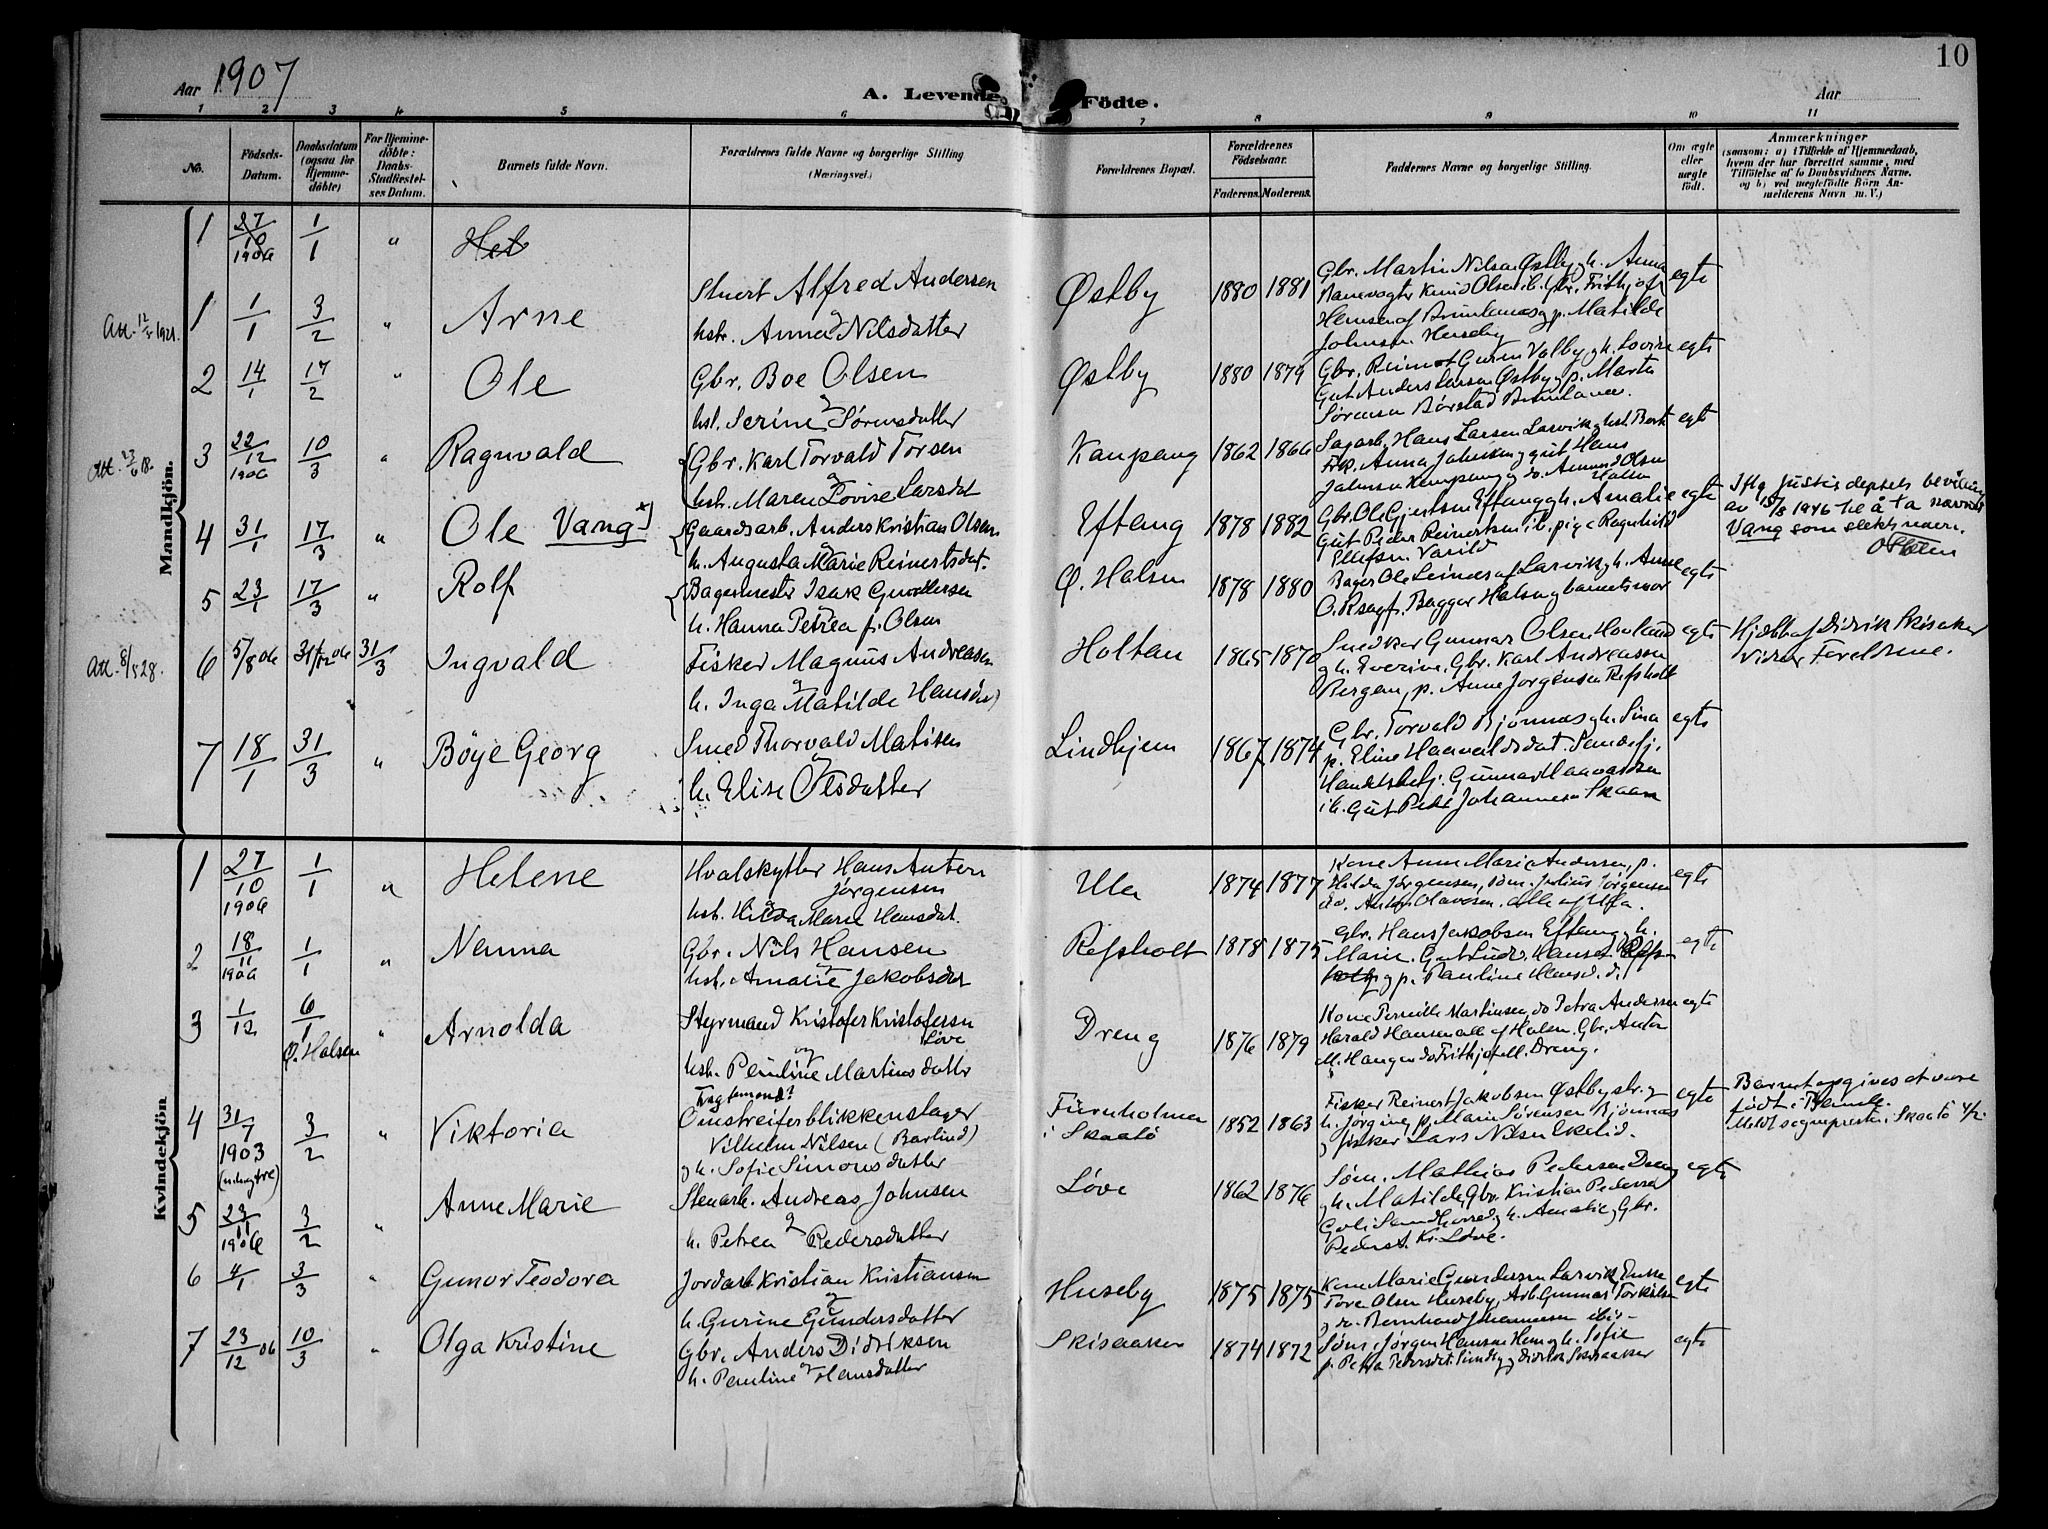 10
Aar 1907
A. Levende Födte.
Aar
1 2 3 4 5 6 7 8 9 10 11
No.
Födsels-Datum.
Daabsdatum (ogsaa for Hjemmedöbte)
For Hjemmedöbte: Daabs-Stadfæstelses Datum.
Barnets fulde Navn.
Forældrenes fulde Navne og borgerlige Stilling
(Næringsvei.)
Forældrenes Bopæl.
Forældrenes Födselsaar.
Faderens. Moderens.
Faddernes Navne og borgerlige Stilling.
Om ægte eller uægte født.
Anmærkninger
(saasom: a) i Tilfælde af Hjemmedaab, hvem der har forrettet samme, med Tilföielse af to Daabsvidners Navne. og b) ved uægtefödte Börn Anmelderens Navn m. V.)
Mandkjön.
1 27/10 1906 1/1 " Hel
1 1/1 3/2 " Arne
Alfred Andersen
hst. Anna Nilsdatter
Østby 1880 1881
Gbr. Martin Nilsen Østby gh. Anna
Banevogter Knud Olsen Gbr. Frithjof
p. Matilde
Johnsen Huseby
egte
2 14/1 17/2 " Ole
Gbr. Boe Olsen
og
hst. Serine Sørensdatter
Østby 1880 1879
Gut Anders Larsen Østby og p. Marta
Sørensen
egte
3 22/12 1906 10/3 " Ragnvald
Gbr. Karl Torvald Torsen
og
hst. Maren Lovise Larsdat
Kaupang 1862 1866
Sagarb. Hans Larsen Larvik
Frk. Anna Johnsen
egte
4 31/1 17/3 " Ole Vang *)
Gaardsarb. Anders Kristian Olsen
og
h. Augusta Marie Reinertsdat.
Eftang 1878 1882
Gbr. Ole Gjertsen Eftang gh. Amalie
Gut Peder Reinertsen pige Ragnhild
Ellefsen Varild
egte
Iflg justisdeptets bevilling
av 15/8 1946 til å ta navnet
Vang som slektsnavn.
5 23/1 17/3 " Rolf
Bagermester Isak
h. Hanna Petrea f. Olsen
Ø. Halsen 1878 1880
Bager Ole af Larvik gh. Anne
egte
6 5/8 06 31/12 06 31/3 Ingvald
Fisker Magnus Andreasen
og
h. Inga Matilde Hansd.
Holtan 1865 1870
Snedker Gunnar Olsen Hovland
gh. Everine, Gbr. Karl Andreassen
Bergan, p. Anne Jørgensen Refsholt
egte
Hjdøbt af Didrik Skisaker
7 18/1 31/3 " Böye Georg
Smed Thorvald Matisen
og
h. Elise Olsdatter
Lindhjem 1867 1874
Gbr. Torvald Bjønnes gh. Sina
p. Eline Haavaldsdat. Sandefj.
Handelsbetj. Gunnar Haavaldsen
Gut Peder Johannesen Skaan
egte
Kvindekjön
1 27/10 1906 1/1 " Helene
Hvalskytter Hans Anton
Jørgensen
og
hst. Hilda Marie Hansdat.
Ula 1874 1877
Kone Anne Marie Andersen, p.
Hilda Jørgensen, søm. Julius Jørgensen
do. Anton Olavesen. alle af Ula.
egte
2 18/11 1906 1/1 " Nanna
Gbr. Nils Hansen
og
hst. Amalie Jakobsdat
Refsholt 1878 1875
Gbr. Hans Jakobsen Eftang gh.
Marie. Gut Ludv. Hansen Refs-
holt og p. Pauline Hansd. d.
egte
3 1/12 6/1 Ø. Halsen " Arnolda
Styrmand Kristofer Kristofersen
Løve
og
hst. Pauline Martinsdatter
Dreng 1876 1879
Kone Pernille Martinsen, do Petra Andersen
Harald Hansen alle af Halsen. Gbr. Anton
M. Haugen do Frithjof M. Dreng.
egte
4 31/7 1903 3/2 " Viktoria
Omstreifer blikkenslager
Vilhelm Nilsen (Barlind)
og h. Sofie Simonsdatter
Furuholmen
i Skaatö 1852 1863
Fisker Reinert Jakobsen Østbystr. og
h. Jørgine, p. Marie Sørensen Bjønnes
og fisker Lars Nilsen Ekelid.
egte
Barnet opgives at være
født i
Meldt sogneprest i Skaatö 4/2.
5 23/11 1906 3/2 " Anne Marie
Stenarb. Andreas Johnsen
og
h. Petrea Pedersdatter
Løve 1862 1876
Søm. Mathias Pedersen Dreng
gh. Matilde, Gbr. Kristian Pedersen
gh. Amalie, Gbr.
Peder Kr. Løve.
egte
6 4/1 3/3 " Gunor Teodora
Jordarb Kristian Kristiansen
og
h. Gurine Gundersdatter
Huseby 1875 1875
Kone Marie Gundersen Larvik, Enke
Tore Olsen Huseby, Arb. Gunnar Torkilsen
og do. Bernhard Johannesen ibid-
egte
7 23/12 06 10/3 " Olga Kristine
Gbr. Anders Didriksen
og
h. Pauline Hansdatter
Skisaaker 1874 1872
Søm. Jørgen Hansen Hem gh. Sofie
p. Petra Pedersdat. Sundby og Didrik Skisaaker
egte
Att. 12/5 1921.
Att. 23/6 18.
Att. 8/5 28.